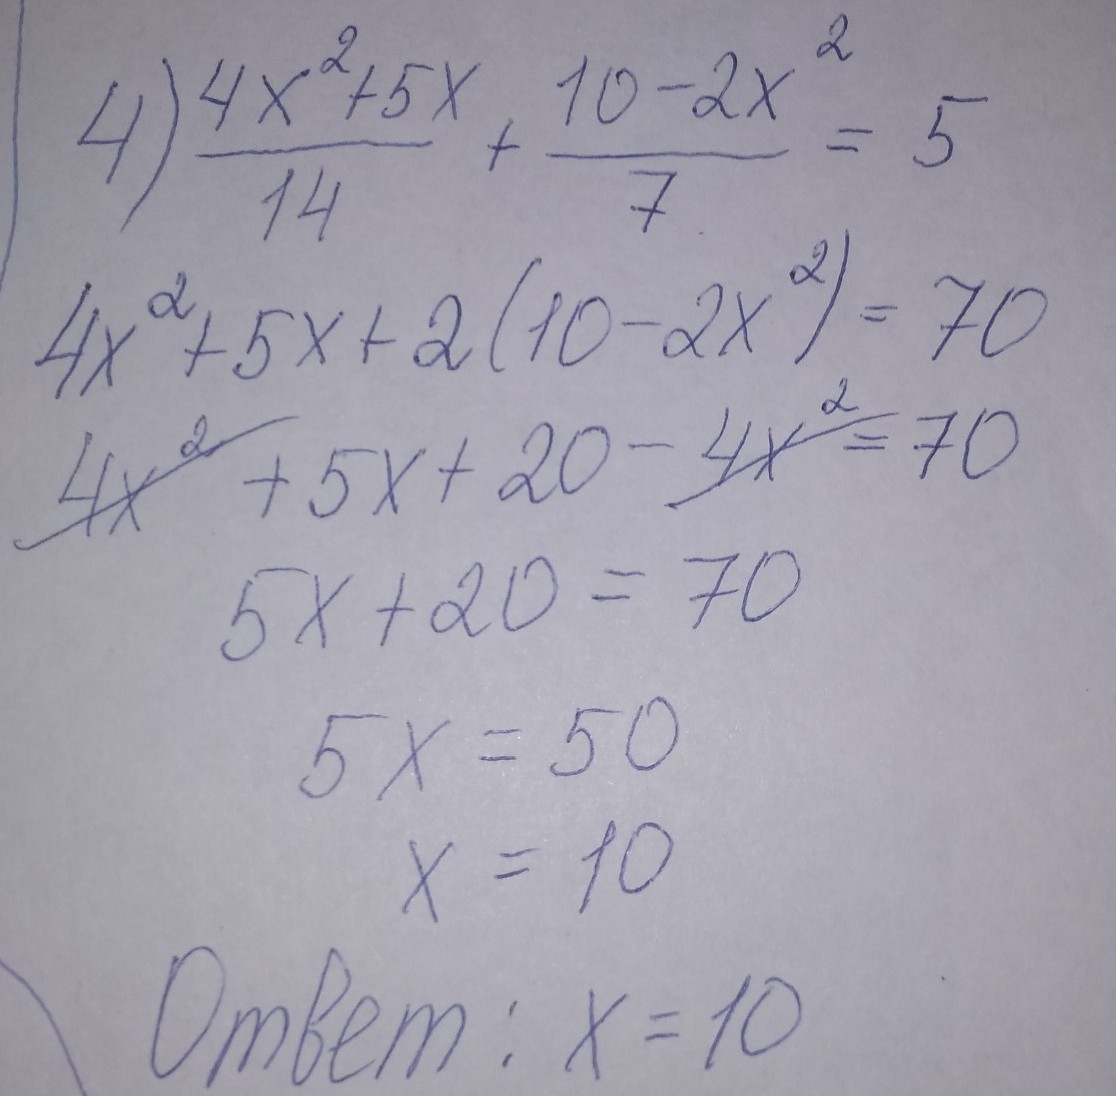 4) (4x²+5x)/14 + (10-2x²)/7 = 5
4x²+5x+2(10-2x²)=70
4x²+5x+20-4x²=70
5x+20=70
5x=50
x=10
Ответ: x=10